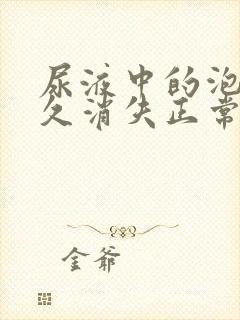 尿液中的泡
久消失正常
金爷